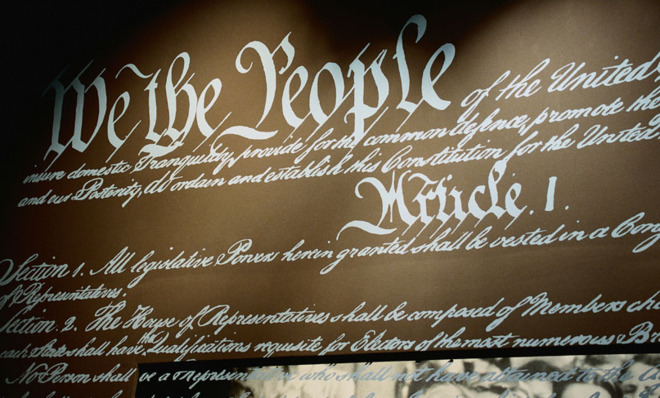 We the People of the United
insure domestic Tranquility, provide for the common defence, promote the
and our Posterity, do ordain and establish this Constitution for the United
Article. I.
Section 1. All legislative Powers herein granted shall be vested in a Cong
of Representatives.
Section. 2. The House of Representatives shall be composed of Members cho
each State shall have the Qualifications requisite for Electors of the most numerous Br
No Person shall be a Representative who shall not have attained to the